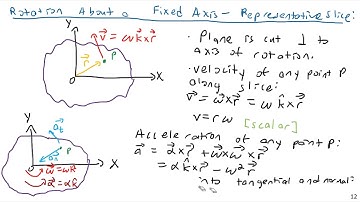 Rotation About a Fixed Axis - Representative Slice:
Y
v⃗ = ωk̂×r⃗
r⃗
P
X
• Plane is cut ⊥ to
axis of rotation.
• Velocity of any point P
along slice:
v⃗ = ω⃗×r⃗ = ω k̂×r⃗
v = rω
[scalar]
Acceleration of any point P:
a⃗ = α⃗×r⃗ + ω⃗×ω⃗×r⃗
= αk̂×r⃗ - ω²r⃗
into tangential and normal:
Y
a⃗t
P
a⃗n
X
ω⃗ = ωk̂
α⃗ = αk̂
12